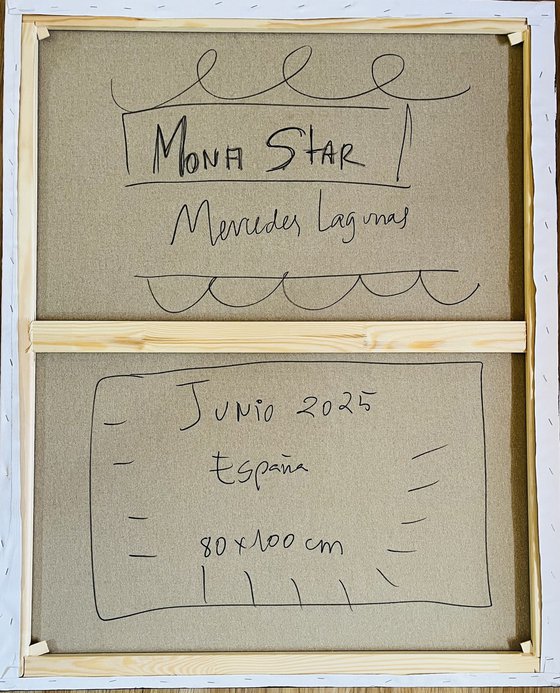 MONA STAR
Mercedes Lagunas
JUNIO 2025
España
80x100 cm